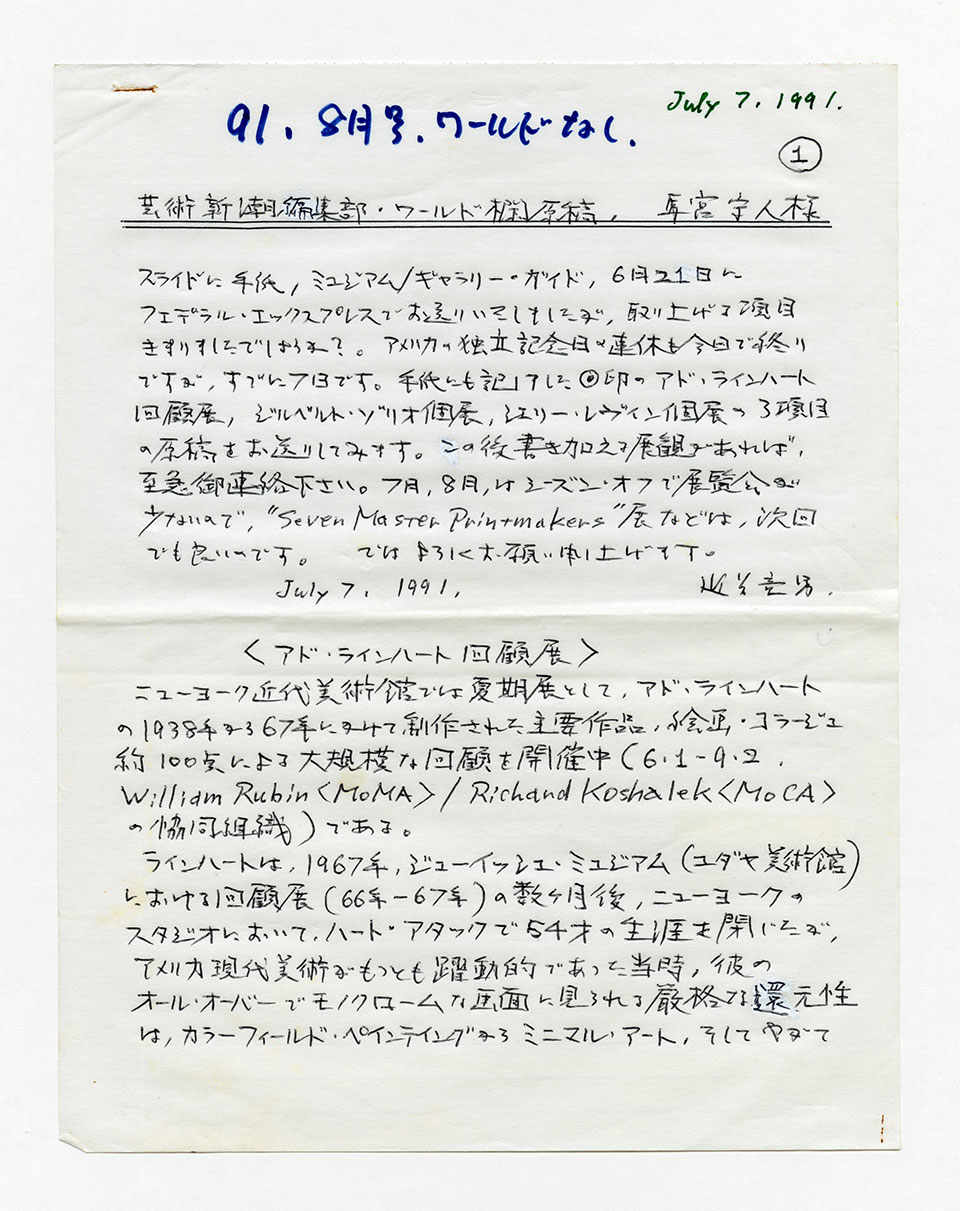 July 7. 1991.
91. 8月号. ワールドなし.
1
芸術新潮編集部・ワールド欄原稿, 宮守人様
スライドに手紙, ミュジアム/ギャラリー・ガイド, 6月21日に
フェデラル・エックスプレスでお送りいたしましたが, 取り上げる項目
きまりましたでしょうか?。アメリカの独立記念日の連休も今日で終り
ですが, すでに7日です。手紙にも記しました◎印のアド・ラインハート
回顧展, ジルベルト・ゾリオ個展, シェリー・レヴィン個展の3項目
の原稿をお送りしてみます。この後書き加える展観があれば,
至急御連絡下さい。7月, 8月, はシーズン・オフで展覧会が
少ないので, “Seven Master Printmakers”展などは, 次回
でも良いのです。 ではよろしくお願い申し上げます。
July 7, 1991.
〈アド・ラインハート回顧展〉
ニューヨーク近代美術館では夏期展として, アド・ラインハート
の1938年から67年にかけて制作された主要作品, 絵画・コラージュ
約100点による大規模な回顧を開催中(6.1-9.2.
William Rubin〈MoMA〉/Richard Koshalek〈MoCA〉
の協同組織)である。
ラインハートは, 1967年, ジューイッシュ・ミュジアム(ユダヤ美術館)
における回顧展(66年-67年)の数ヶ月後, ニューヨークの
スタジオにおいて, ハート・アタックで54才の生涯を閉じたが,
アメリカ現代美術がもっとも躍動的であった当時, 彼の
オール・オーバーでモノクロームな画面に見られる厳格な還元性
は, カラーフィールド・ペインティングからミニマル・アート, そしてやがて